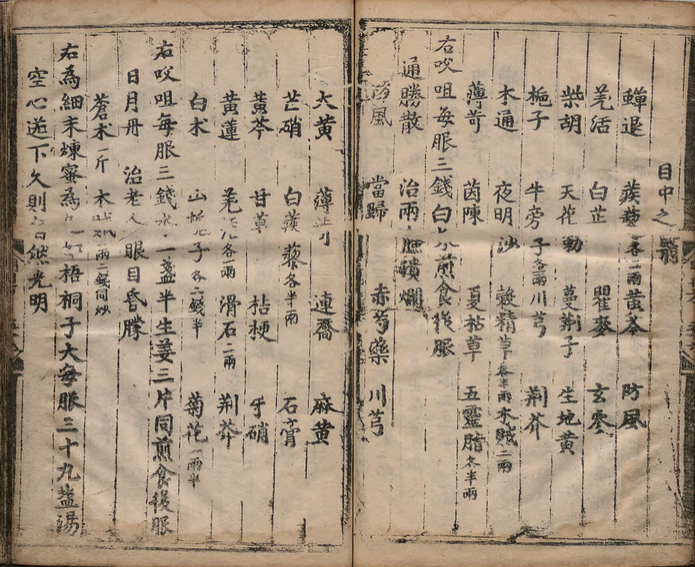 目中之翳
蟬退 蒺藜各二兩 黃芩 防風
羌活 白芷 瞿麥 玄參
柴胡 天花粉 蔓荆子 生地黃
梔子 牛旁子各兩 川芎 荆芥
木通 夜明沙 榖精草各半兩 木賊二兩
薄苛 茵陳 夏枯草 五靈脂各半兩
右㕮咀每服三錢白水煎食後服
通勝散 治兩瞼爛
防風 當歸 赤芍藥 川芎
大黃 薄 連喬 麻黃
芒硝 白蒺藜各半兩 石膏
黃芩 甘草 桔梗 牙硝
黃蓮 羌活各一兩 滑石二兩 荆芥
白术 山梔子各二錢半 菊花一兩半
右㕮咀每服三錢水一盞半生姜三片同煎食後服
日月丹 治老人眼目昏朦
蒼术一斤 木賊二兩 同炒
右為細末煉蜜為 梧桐子大每服三十九鹽湯
空心送下久則自然光明